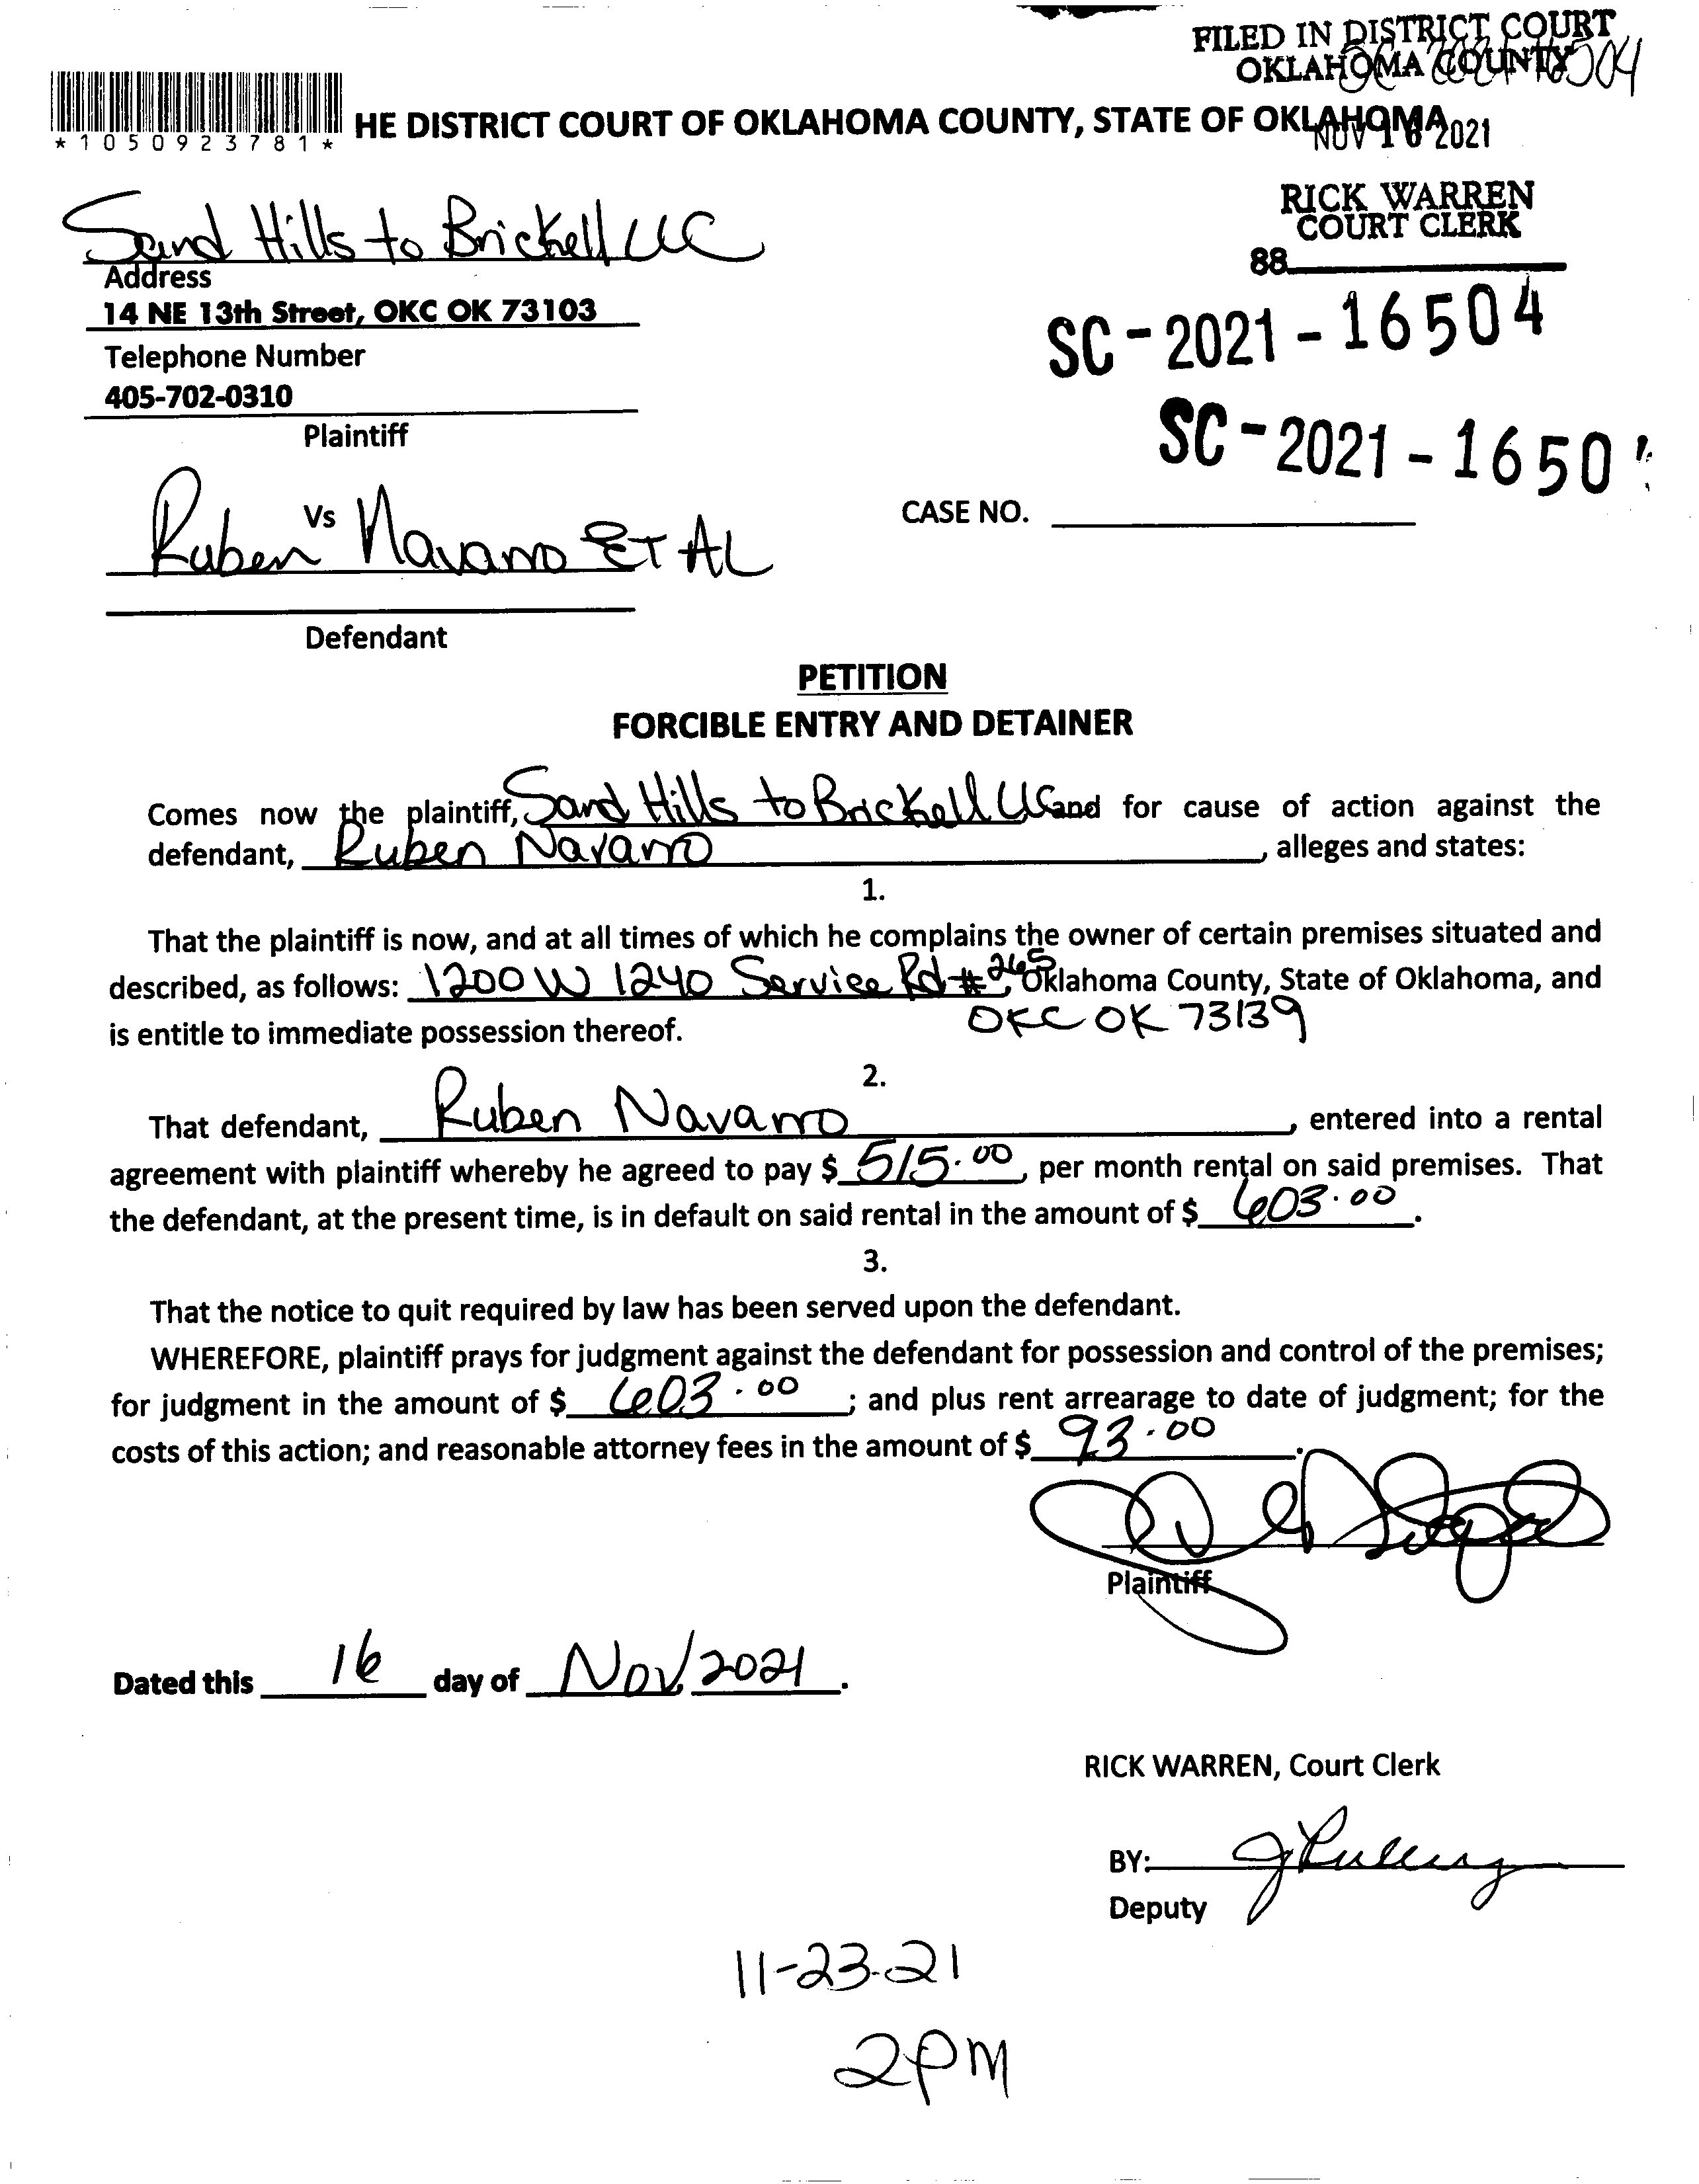 FILED IN DISTRICT COURT
OKLAHOMA COUNTY
*1050923781*
HE DISTRICT COURT OF OKLAHOMA COUNTY, STATE OF OKLAHOMA
NOV 16 2021
RICK WARREN
COURT CLERK
88
SC-2021-16504
SC-2021-1650
Sand Hills to Brickell LLC
Address
14 NE 13th Street, OKC OK 73103
Telephone Number
405-702-0310
Plaintiff
Vs
CASE NO.
Ruben Navarro ET AL
Defendant
PETITION
FORCIBLE ENTRY AND DETAINER
Comes now the plaintiff, Sand Hills to Brickell LLC and for cause of action against the
defendant, Ruben Navarro, alleges and states:
1.
That the plaintiff is now, and at all times of which he complains the owner of certain premises situated and
described, as follows: 1200 W I240 Service Rd # 265, Oklahoma County, State of Oklahoma, and
OKC OK 73139
is entitle to immediate possession thereof.
2.
That defendant, Ruben Navarro, entered into a rental
agreement with plaintiff whereby he agreed to pay $ 515.00, per month rental on said premises. That
the defendant, at the present time, is in default on said rental in the amount of $ 603.00.
3.
That the notice to quit required by law has been served upon the defendant.
WHEREFORE, plaintiff prays for judgment against the defendant for possession and control of the premises;
for judgment in the amount of $ 603.00; and plus rent arrearage to date of judgment; for the
costs of this action; and reasonable attorney fees in the amount of $ 93.00.
Plaintiff
Dated this 16 day of Nov. 2021.
RICK WARREN, Court Clerk
BY:
Deputy
11-23-21
2PM